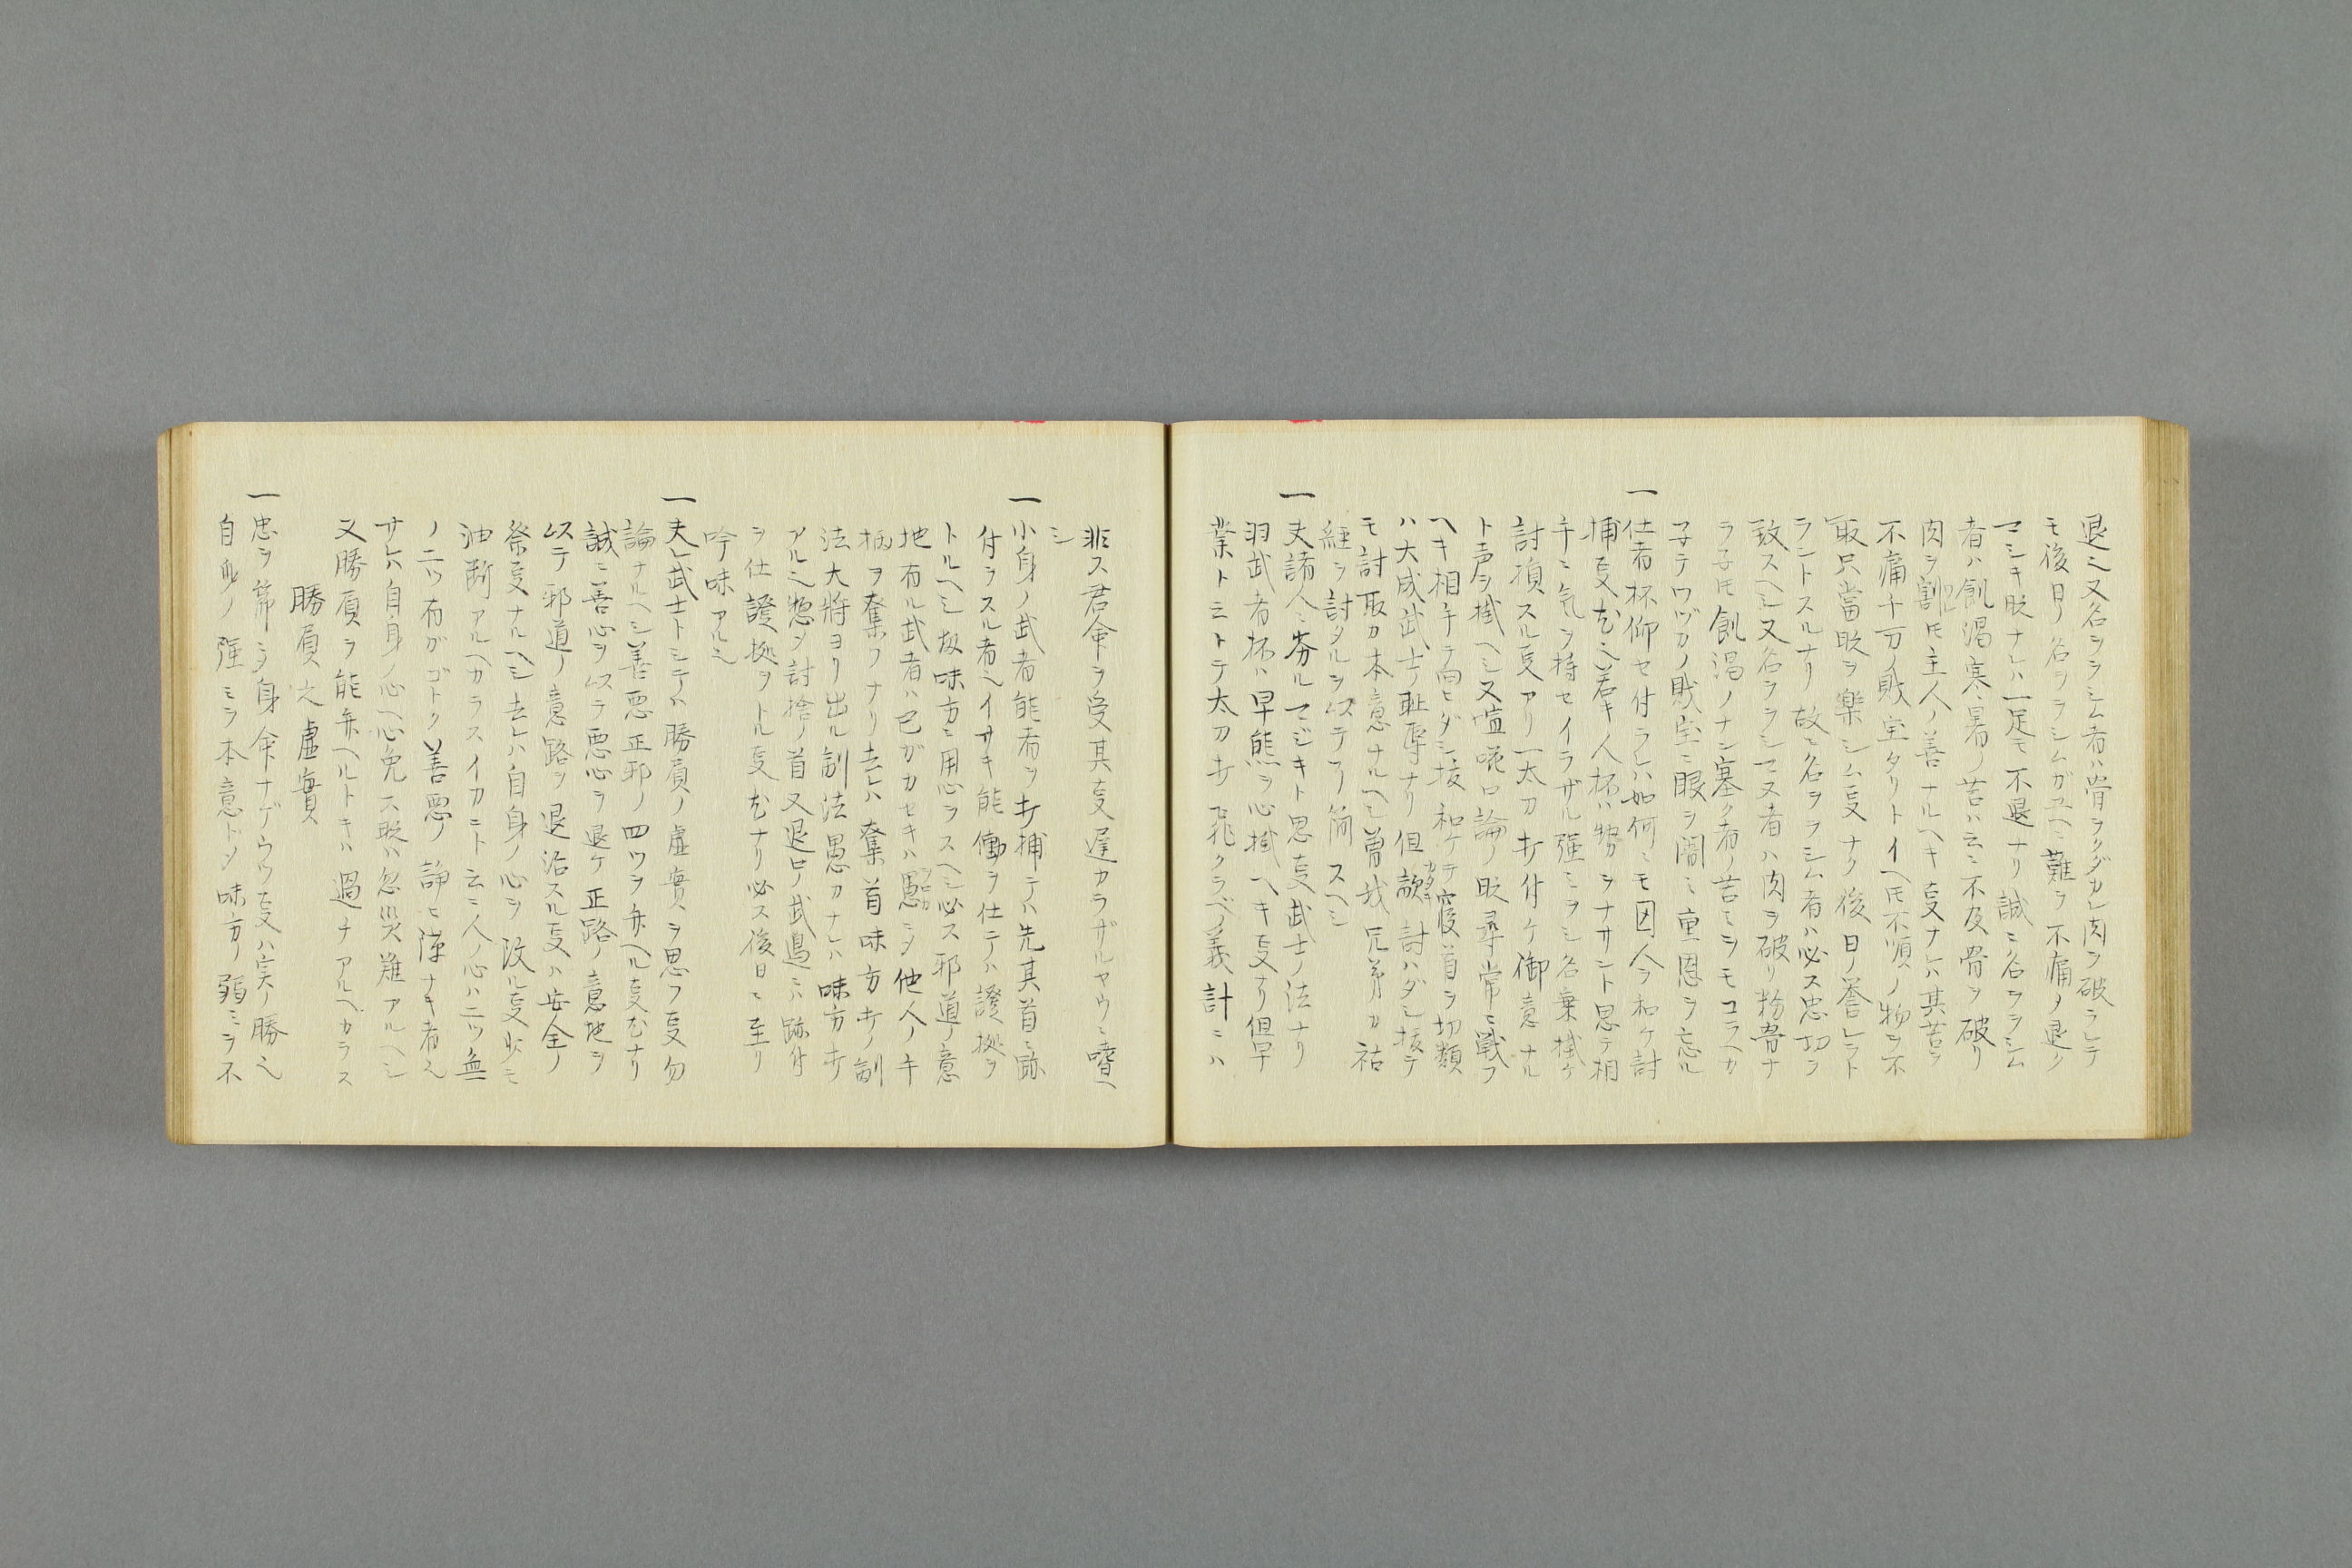 退ミ又名ヲヲシム者ハ骨ヲクダカレ肉ヲ破ラレテ
モ後日ノ名ヲヲシムガ故ニ難ヲ不痛ノ退ク
マシキ時ナレハ一足モ不退ナリ誠ニ名ヲヲシム
者ハ飢渇寒暑ノ苦ハ云ニ不及骨ヲ破リ
肉ヲ割トモ主人ノ善ナルヘキ事ナレハ其苦ヲ
不痛千万ノ財宝タリトイヘトモ不順ノ物ヲ不
取只當時ヲ楽シム事ナク後日ノ誉レヲト
ラントスルナリ故ニ名ヲヲシム者ハ必ス忠切ヲ
致スヘシ又名ヲヲシマヌ者ハ肉ヲ破リ粉骨ナ
ラ子トモ飢渇ノナン寒ク者ノ苦ミヲモコラヘカ
子テワヅカノ財宝ニ眼ヲ闇シ重恩ヲ忘ル
一仕者杯仰セ付ラレハ如何ニモ囚人ヲ和ケ討
捕事也若キ人杯ハ勢ヲナサント思テ相
手ニ気ヲ持セイラザル強ミヲシ名乗掛ケ
討損スル事アリ一太刀打付ケ御意ナル
ト声ヲ掛ヘシ又喧嘩口論ノ時尋常ニ戰フ
ヘキ相手ヲ向ヒダシ抜和ケテ寝首ヲ切類
ハ大成武士ノ耻辱ナリ但敵討ハダシ抜テ
モ討取カ本意ナルヘシ曽我兄弟カ祐
経ヲ討タルヲ以テ了簡スヘシ
一夫諸人ニ劣ルマジキト思事武士ノ法ナリ
羽武者杯ハ早態ヲ心掛ヘキ事ナリ但早
業トニトテ太刀打飛クラベノ義計ニハ
非ス君命ヲ受其事遅カラザルヤウニ嗜ヘ
シ
一小身ノ武者能者ヲ打捕テハ先其首ニ跡
付ヲスル者ヘイサキ能働ヲ仕テハ證拠ヲ
トルヘシ扨味方ニ用心ヲスヘシ必ス邪道ノ意
地有ル武者ハ己ガカセキハ愚ニシテ他人ノ手
柄ヲ奪フナリ去レハ奪首味方打ノ制
法大将ヨリ出ル制法愚カナレハ味方打
アルヘシ惣シテ討捨ノ首又退口ノ武邊ニハ跡付
ヲ仕證拠ヲトル事也ナリ必ス後日ニ至リ
吟味アルヘシ
一夫レ武士トシテハ勝負ノ虚實ヲ思フ事勿
論ナルヘシ善悪正邪ノ四ツヲ弁ヘル事也ナリ
誠ニ善心ヲ以ラ悪心ヲ退ケ正路ノ意地ヲ
以テ邪道ノ意路ヲ退治スル事ハ安全ノ
祭事ナルヘシ去レハ自身ノ心ヲ改ル事少シモ
油断アルヘカラスイカニト云ニ人ノ心ハ二ツ無
ノ二ツ有ガゴトク善悪ノ諍ヒ隙ナキ者也
サレハ自身ノ心ヘ心免ス時ハ忽災難アルヘシ
又勝負ヲ能弁ヘルトキハ過チアルヘカラス
勝負之虚實
一忠ヲ節ニシテ身命ナゲウツ事ハ実ノ勝也
自身ノ強ミヲ本意トシテ味方ノ弱ミヲ不